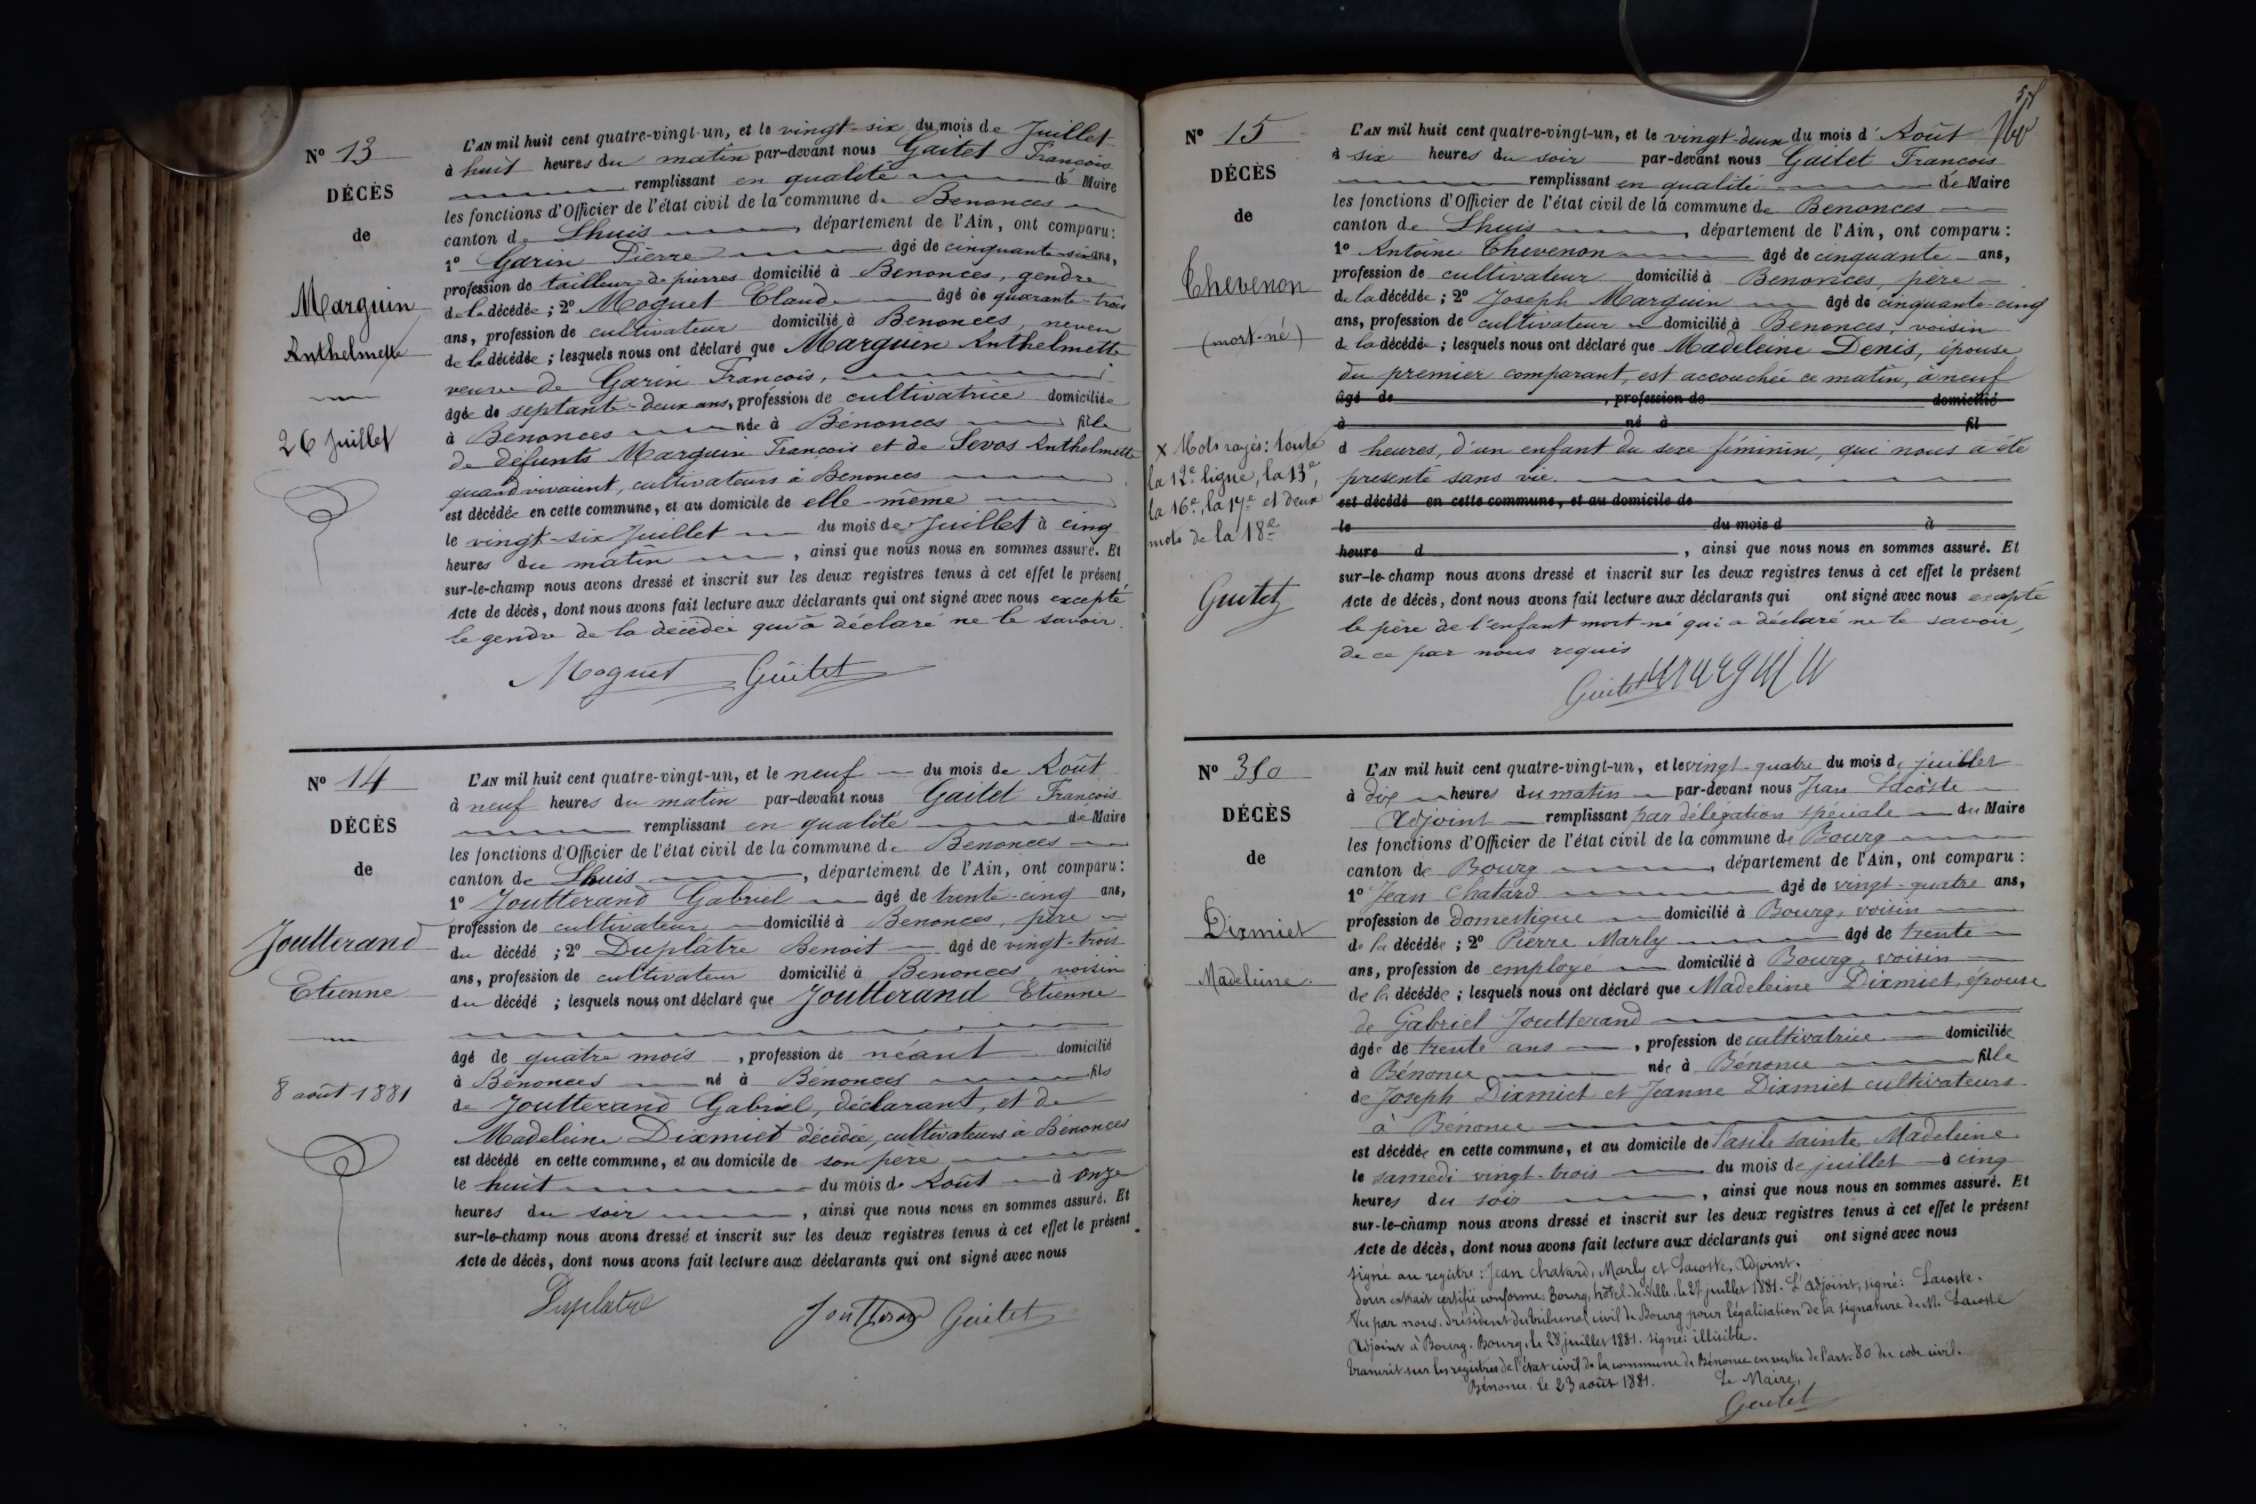 N° 13
DÉCÈS
de
Marguin
Anthelmette
26 Juillet
L'AN mil huit cent quatre-vingt-un, et le vingt-six du mois de Juillet
à huit heures du matin par-devant nous Gaitet François
remplissant en qualité de Maire
les fonctions d'Officier de l'état civil de la commune de Benonces
canton de Lhuis, département de l'Ain, ont comparu:
1° Garin Pierre âgé de cinquante-six ans,
profession de tailleur de pierres domicilié à Benonces, gendre
de la décédée; 2° Moguet Claude âgé de quarante-trois
ans, profession de cultivateur domicilié à Benonces, neveu
de la décédée; lesquels nous ont déclaré que Marguin Anthelmette
veuve de Garin François,
âgée de septante-deux ans, profession de cultivatrice domiciliée
à Bénonces née à Bénonces fille
de défunts Marguin François et de Sevos Anthelmette
quand vivaient, cultivateurs à Benonces
est décédée en cette commune, et au domicile de elle-même
le vingt-six Juillet du mois de Juillet à cinq
heures du matin, ainsi que nous nous en sommes assuré. Et
sur-le-champ nous avons dressé et inscrit sur les deux registres tenus à cet effet le présent
Acte de décès, dont nous avons fait lecture aux déclarants qui ont signé avec nous excepté
le gendre de la décédée qui a déclaré ne le savoir.
Moguet Gaitet
N° 14
DÉCÈS
de
Joutterand
Etienne
8 août 1881
L'AN mil huit cent quatre-vingt-un, et le neuf du mois de Août
à neuf heures du matin par-devant nous Gaitet François
remplissant en qualité de Maire
les fonctions d'Officier de l'état civil de la commune de Benonces
canton de Lhuis, département de l'Ain, ont comparu:
1° Joutterand Gabriel âgé de trente-cinq ans,
profession de cultivateur domicilié à Benonces, père
du décédé; 2° Duplâtre Benoit âgé de vingt-trois
ans, profession de cultivateur domicilié à Benonces, voisin
du décédé; lesquels nous ont déclaré que Joutterand Etienne
âgé de quatre mois, profession de néant domicilié
à Bénonces né à Bénonces fils
de Joutterand Gabriel, déclarant, et de
Madeleine Dixmiet décédée, cultivateurs à Bénonces
est décédé en cette commune, et au domicile de son père
le huit du mois de Août à onze
heures du soir, ainsi que nous nous en sommes assuré. Et
sur-le-champ nous avons dressé et inscrit sur les deux registres tenus à cet effet le présent
Acte de décès, dont nous avons fait lecture aux déclarants qui ont signé avec nous
Duplatre Joutterand Gaitet
N° 15
DÉCÈS
de
Chevenon
(mort-né)
x Mots rayés: toute
la 12e ligne, la 13e,
la 16e, la 17e et deux
mots de la 18e
Gaitet
L'AN mil huit cent quatre-vingt-un, et le vingt-deux du mois d'Août
à six heures du soir par-devant nous Gaitet François
remplissant en qualité de Maire
les fonctions d'Officier de l'état civil de la commune de Benonces
canton de Lhuis, département de l'Ain, ont comparu:
1° Antoine Chevenon âgé de cinquante ans,
profession de cultivateur domicilié à Benonces, père
de la décédée; 2° Joseph Marguin âgé de cinquante-cinq
ans, profession de cultivateur domicilié à Benonces, voisin
de la décédée; lesquels nous ont déclaré que Madeleine Denis, épouse
du premier comparant, est accouchée ce matin, à neuf
âgé de, profession de domicilié
à né à fil
d heures, d'un enfant du sexe féminin, qui nous a été
presenté sans vie.
est décédé en cette commune, et au domicile de
le du mois d à
heure d, ainsi que nous nous en sommes assuré. Et
sur-le-champ nous avons dressé et inscrit sur les deux registres tenus à cet effet le présent
Acte de décès, dont nous avons fait lecture aux déclarants qui ont signé avec nous excepté
le père de l'enfant mort-né qui a déclaré ne le savoir,
de ce par nous requis
Gaitet Marguin
N° 310
DÉCÈS
de
Dixmiet
Madeleine
L'AN mil huit cent quatre-vingt-un, et le vingt-quatre du mois de juillet
à dix heures du matin par-devant nous Jean Lacoste
Adjoint remplissant par délégation spéciale du Maire
les fonctions d'Officier de l'état civil de la commune de Bourg
canton de Bourg, département de l'Ain, ont comparu:
1° Jean Chatard âgé de vingt-quatre ans,
profession de domestique domicilié à Bourg, voisin
de la décédée; 2° Pierre Marly âgé de trente
ans, profession de employé domicilié à Bourg, voisin
de la décédée; lesquels nous ont déclaré que Madeleine Dixmiet, épouse
de Gabriel Joutterand
âgée de trente ans, profession de cultivatrice domiciliée
à Bénonce née à Bénonce fille
de Joseph Dixmiet et Jeanne Dixmiet cultivateurs
à Bénonce
est décédée en cette commune, et au domicile de l'asile sainte Madeleine
le samedi vingt-trois du mois de juillet à cinq
heures du soir, ainsi que nous nous en sommes assuré. Et
sur-le-champ nous avons dressé et inscrit sur les deux registres tenus à cet effet le présent
Acte de décès, dont nous avons fait lecture aux déclarants qui ont signé avec nous
signé au registre: Jean Chatard, Marly et Lacoste, Adjoint.
Pour extrait certifié conforme: Bourg, hôtel-de-ville, le 27 juillet 1881. L'adjoint, signé: Lacoste.
Vu par nous, président du tribunal civil de Bourg pour légalisation de la signature de M. Lacoste
Adjoint à Bourg. Bourg, le 28 juillet 1881. signé: illisible.
Transcrit sur les registres de l'état civil de la commune de Bénonce en vertu de l'art. 80 du code civil.
Bénonce, le 23 août 1881. Le Maire,
Gaitet